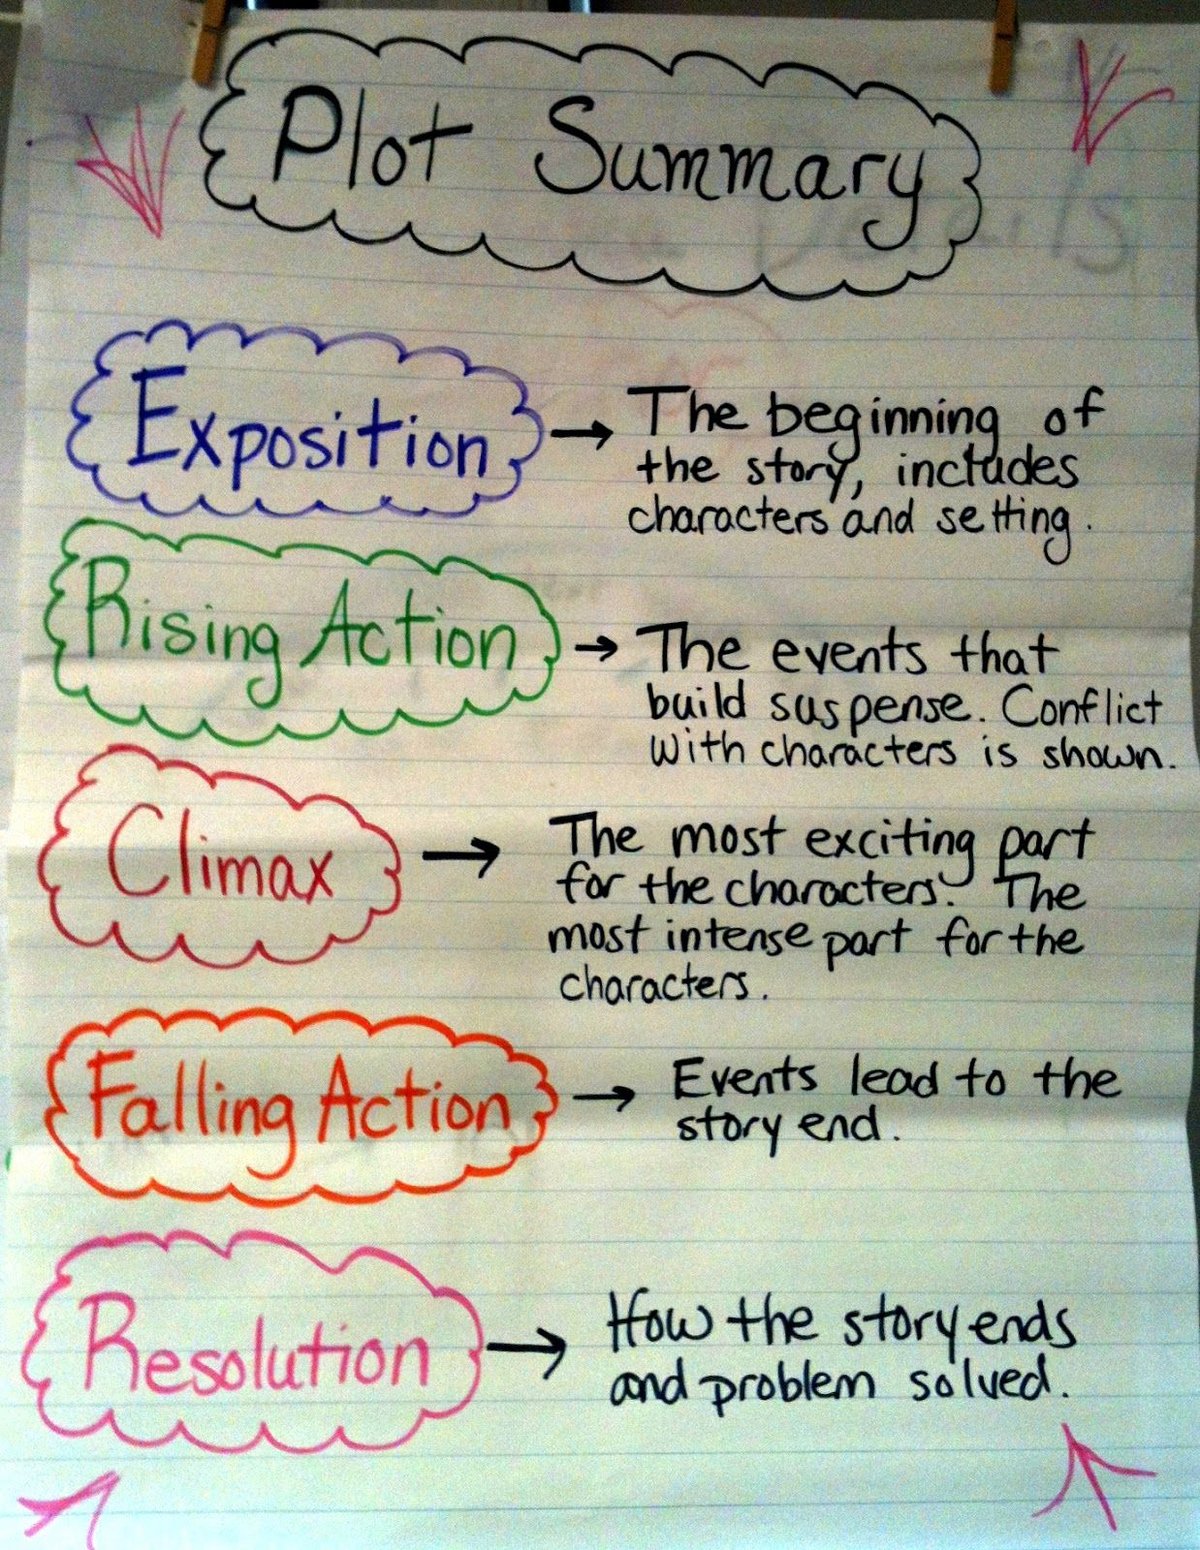 Plot Summary
Exposition → The beginning of
the story, includes
characters and setting.
Rising Action → The events that
build suspense. Conflict
with characters is shown.
Climax → The most exciting part
for the characters. The
most intense part for the
characters.
Falling Action → Events lead to the
story end.
Resolution → How the story ends
and problem solved.